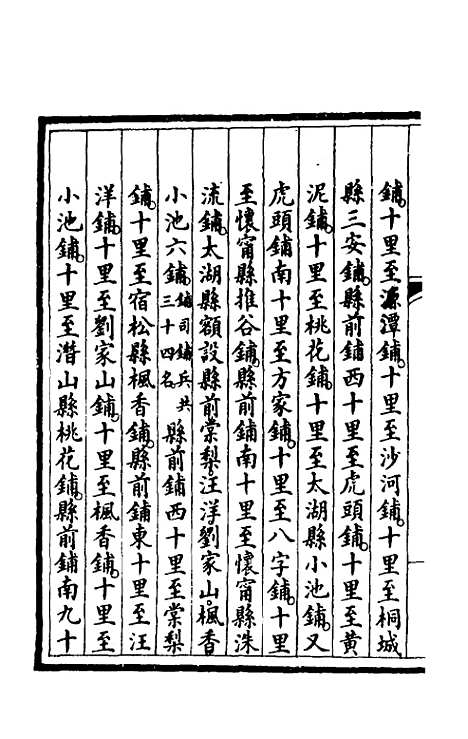 鋪。十里至源潭鋪。十里至沙河鋪。十里至桐城
縣三安鋪。縣前鋪西十里至虎頭鋪。十里至黄
泥鋪。十里至桃花鋪。十里至太湖縣小池鋪。又
虎頭鋪南十里至方家鋪。十里至八字鋪。十里
至懷甯縣推谷鋪。縣前鋪南十里至懷甯縣洙
流鋪。太湖縣額設縣前棠梨。汪洋劉家山。楓香
小池六鋪。鋪司鋪兵共三十四名縣前鋪西十里至棠梨
鋪。十里至宿松縣楓香鋪。縣前鋪東十里至汪
洋鋪。十里至劉家山鋪。十里至楓香鋪。十里至
小池鋪。十里至潛山縣桃花鋪。縣前鋪南九十